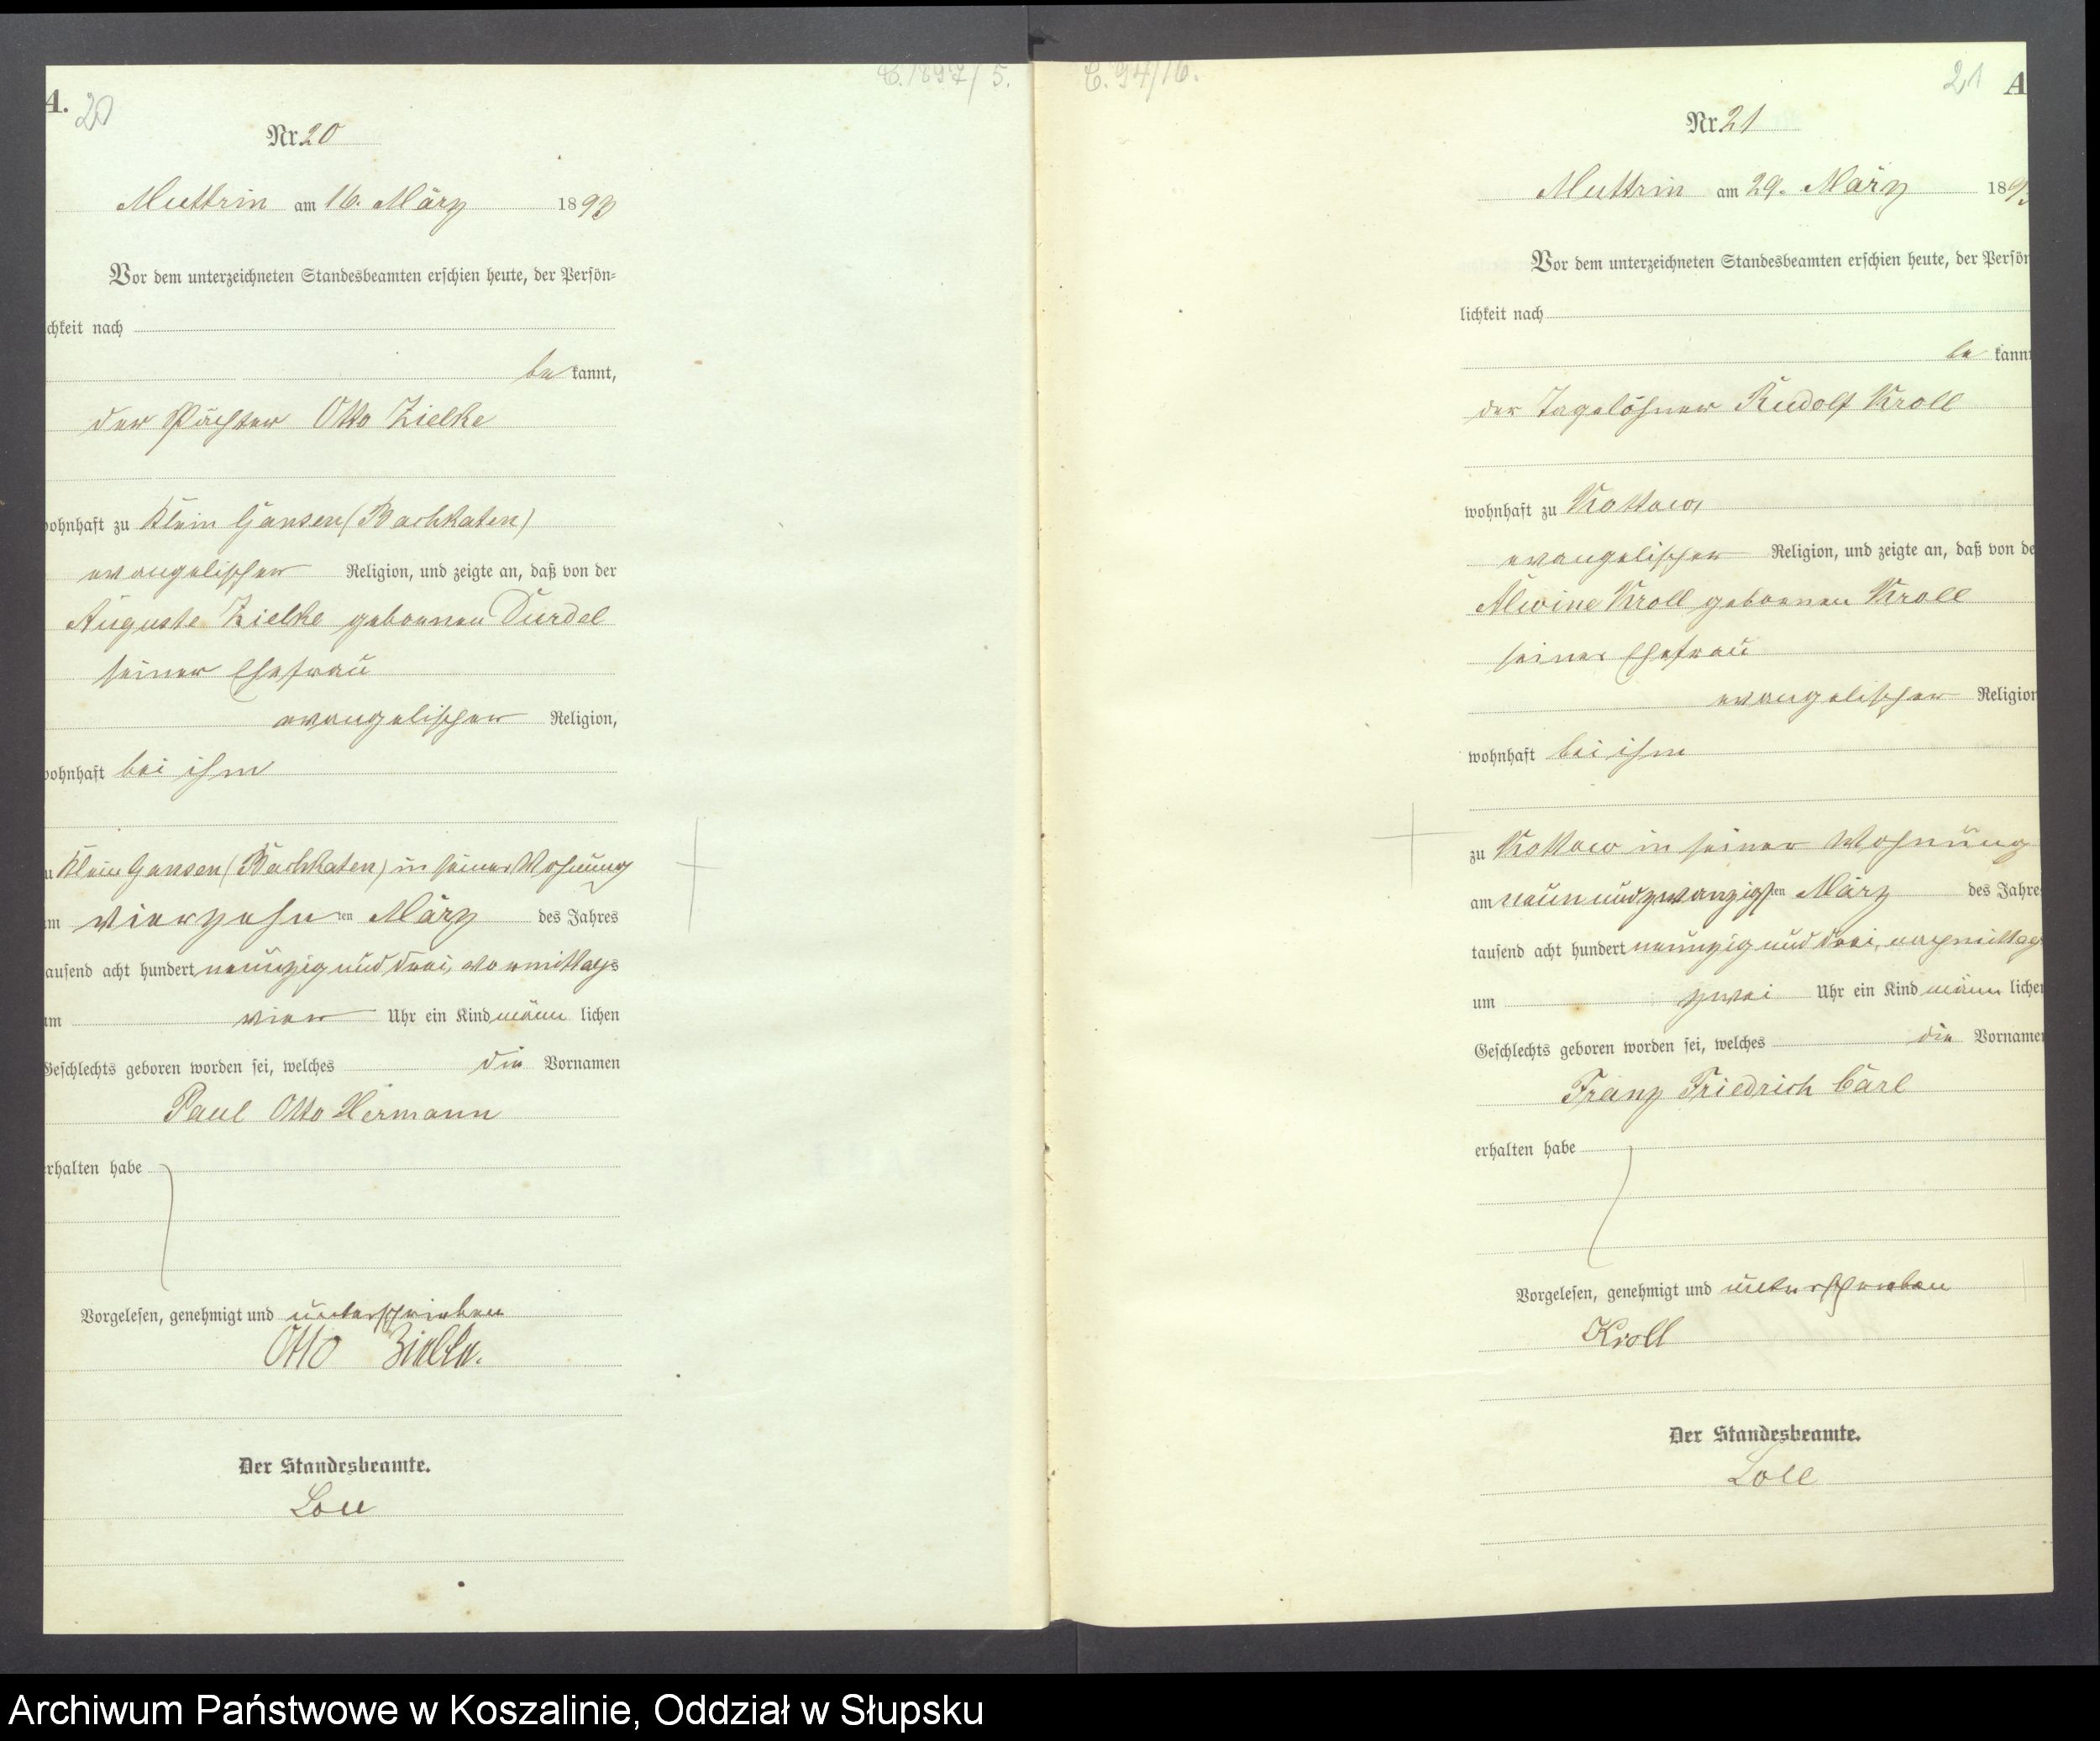 A.
20
C. 1897/5.
Nr. 20
Muttrin am 16. März 1893
Vor dem unterzeichneten Standesbeamten erschien heute, der Persön-
chkeit nach
be kannt,
der Pächter Otto Zielke
wohnhaft zu Klein Gansen (Bachkaten)
evangelischer Religion, und zeigte an, daß von der
Auguste Zielke geborenen Durdel
seiner Ehefrau
evangelischer Religion,
wohnhaft bei ihm
u Klein Gansen (Bachkaten) in seiner Wohnung
am vierzehnten März des Jahres
tausend acht hundert neunzig und drei, vormittags
um vier Uhr ein Kind männ lichen
Geschlechts geboren worden sei, welches die Vornamen
Paul Otto Hermann
erhalten habe
Vorgelesen, genehmigt und unterschrieben
Otto Zielke.
Der Standesbeamte.
Loll
C. 94/16.
21
A
Nr. 21
Muttrin am 29. März 1893
Vor dem unterzeichneten Standesbeamten erschien heute, der Persön
lichkeit nach
be kannt
der Tagelöhner Rudolf Kroll
wohnhaft zu Kottow,
evangelischer Religion, und zeigte an, daß von de
Alwine Kroll geborenen Kroll
seiner Ehefrau
evangelischer Religion
wohnhaft bei ihm
zu Kottow in seiner Wohnung
am neun und zwanzigsten März des Jahre
tausend acht hundert neunzig und drei, nachmittags
um zwei Uhr ein Kind männ lichen
Geschlechts geboren worden sei, welches die Vornamen
Franz Friedrich Carl
erhalten habe
Vorgelesen, genehmigt und unterschrieben
Kroll
Der Standesbeamte.
Loll
Archiwum Państwowe w Koszalinie, Oddział w Słupsku